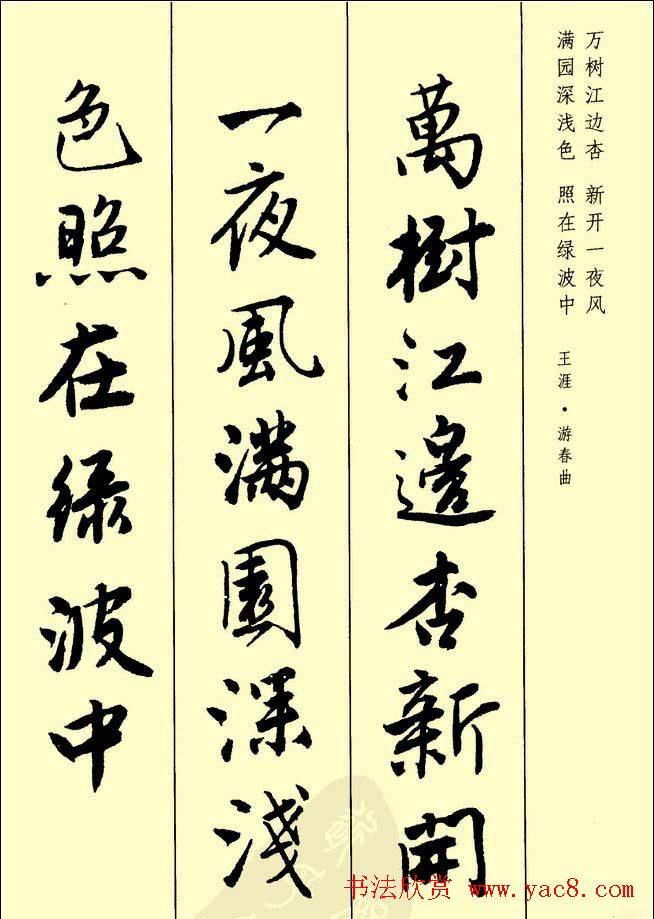 万树江边杏 新开一夜风
满园深浅色 照在绿波中
王涯·游春曲
萬樹江邊杏新開
一夜風滿園深淺
色照在绿波中
书法欣赏 www.yac8.com